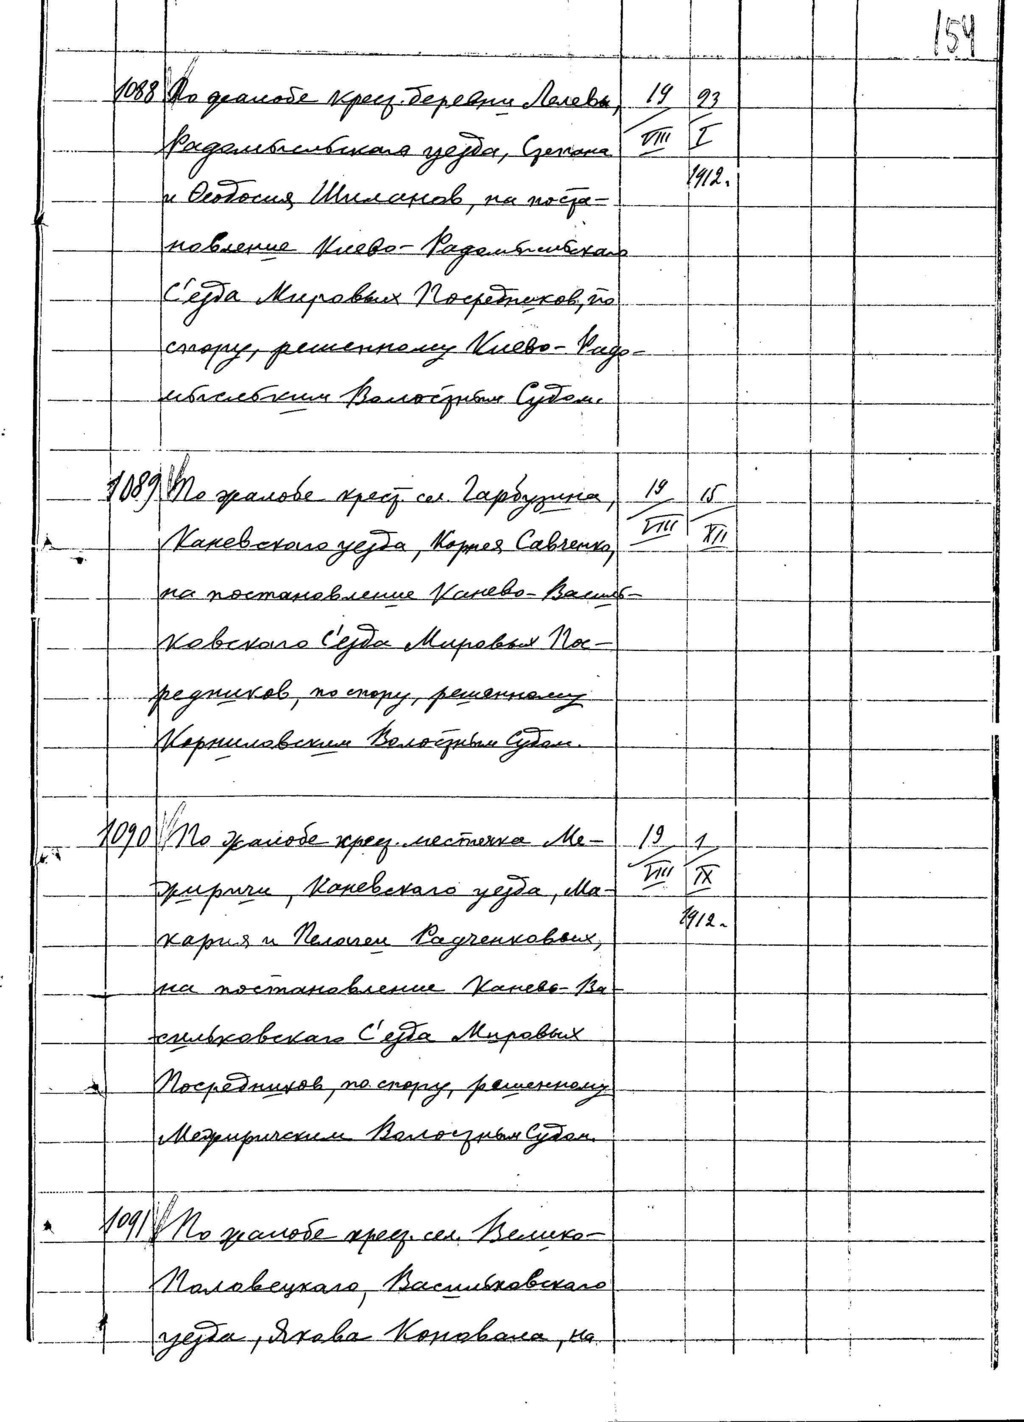 154
1088 По жалобе крест. деревни Лелева, 19/VIII 23/I
Радомысльскаго уезда, Степана 1912.
и Феодосия Шиланов, на поста-
новление Киево-Радомысльскаго
С'езда Мировых Посредников, по
спору, решенному Киево-Радо-
мысльским Волостным Судом.
1089 По жалобе крест. сел. Гарбузина, 19/VIII 15/XII
Каневскаго уезда, Корнея Савченко,
на постановление Канево-Василь-
ковскаго С'езда Мировых Пос-
редников, по спору, решенному
Корниловским Волостным Судом.
1090 По жалобе крест. местечка Ме- 19/VIII 1/IX
жиричи, Каневскаго уезда, Ма- 1912.
кария и Пелагеи Радченковых,
на постановление Канево-Ва-
сильковскаго С'езда Мировых
Посредников, по спору, решенному
Межиричским Волостным Судом.
1091 По жалобе крест. сел. Велико-
Половецкаго, Васильковскаго
уезда, Якова Коновала, на